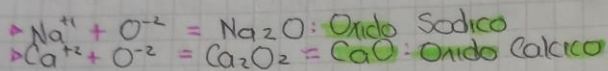 ▷ Na⁺¹ + O⁻² = Na₂O : Oxido Sodico
▷ Ca⁺² + O⁻² = Ca₂O₂ = CaO : Oxido Calcico